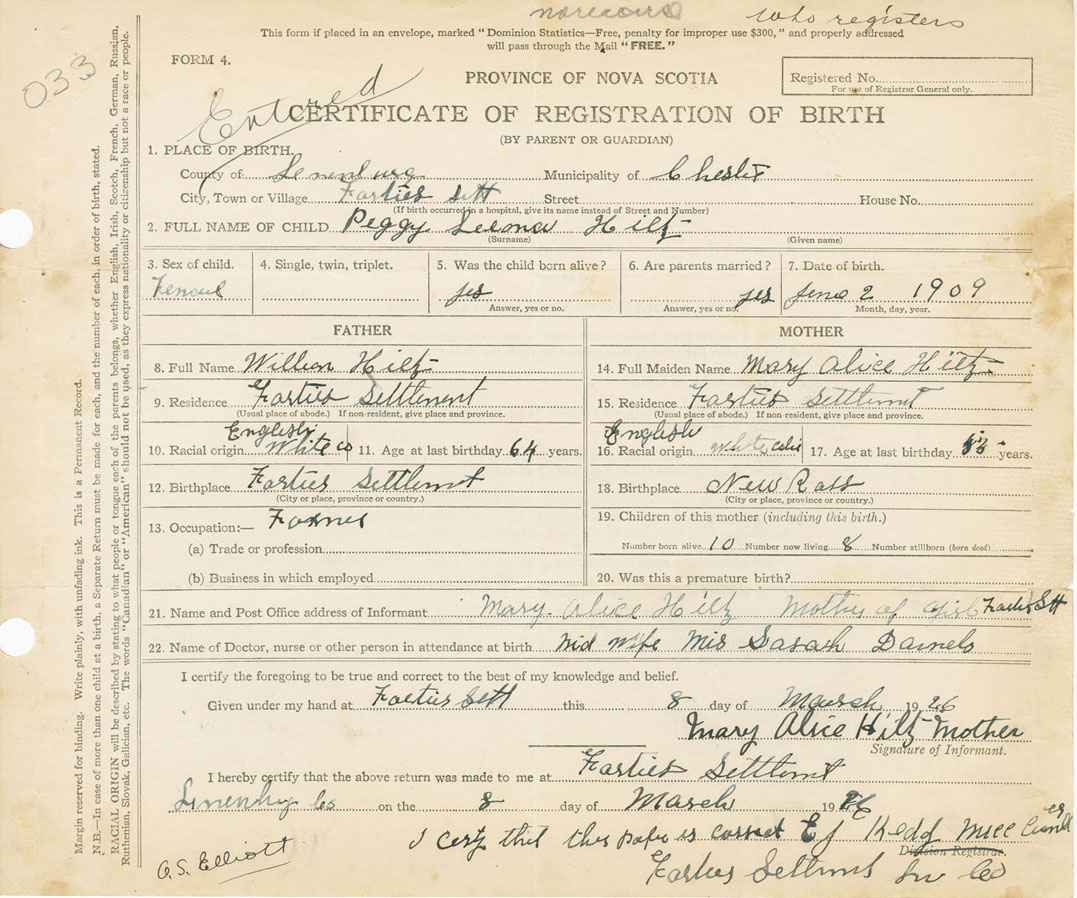 033
who registers
This form if placed in an envelope, marked "Dominion Statistics—Free, penalty for improper use $300," and properly addressed
will pass through the Mail "FREE."
FORM 4.
PROVINCE OF NOVA SCOTIA
Registered No.
For use of Registrar General only.
Entred
CERTIFICATE OF REGISTRATION OF BIRTH
(BY PARENT OR GUARDIAN)
1. PLACE OF BIRTH.
County of Lunenburg Municipality of Chester
City, Town or Village Farties Sett Street House No.
(If birth occurred in a hospital, give its name instead of Street and Number)
2. FULL NAME OF CHILD Peggy Leona Hiltz
(Surname) (Given name)
3. Sex of child. 4. Single, twin, triplet. 5. Was the child born alive? 6. Are parents married? 7. Date of birth.
Femail yes yes June 2 1909
Answer, yes or no. Answer, yes or no. Month, day, year.
FATHER MOTHER
8. Full Name William Hiltz 14. Full Maiden Name Mary Alice Hiltz
9. Residence Farties Settlement 15. Residence Farties Settlmt
(Usual place of abode.) If non-resident, give place and province. (Usual place of abode.) If non-resident, give place and province.
English English
10. Racial origin White co 11. Age at last birthday 64 years. 16. Racial origin white 17. Age at last birthday years.
12. Birthplace Farties Settlmt 18. Birthplace New Ross
(City or place, province or country.) (City or place, province or country.)
13. Occupation:— Farmer 19. Children of this mother (including this birth.)
(a) Trade or profession Number born alive 10 Number now living 8 Number stillborn (born dead)
(b) Business in which employed 20. Was this a premature birth?
21. Name and Post Office address of Informant Mary Alice Hiltz Mother of girl Farties Sett
22. Name of Doctor, nurse or other person in attendance at birth Mid wife Mis Sarah Daniels
I certify the foregoing to be true and correct to the best of my knowledge and belief.
Given under my hand at Farties Sett this 8 day of March 1926
Mary Alice Hiltz Mother
Signature of Informant.
I hereby certify that the above return was made to me at Farties Settlmt
Lunenburg Co on the 8 day of March 1926
I certy that this paper is correct E J Keddy
Division Registrar.
Farties Settlmnt Lu Co
O.S. Elliott
Margin reserved for binding. Write plainly, with unfading ink. This is a Permanent Record.
N.B.—In case of more than one child at a birth, a Separate Return must be made for each, and the number of each, in order of birth, stated.
RACIAL ORIGIN will be described by stating to what people or tongue each of the parents belongs, whether English, Irish, Scotch, French, German, Russian,
Ruthenian, Slovak, Galician, etc. The words "Canadian" or "American" should not be used, as they express nationality or citizenship but not a race or people.